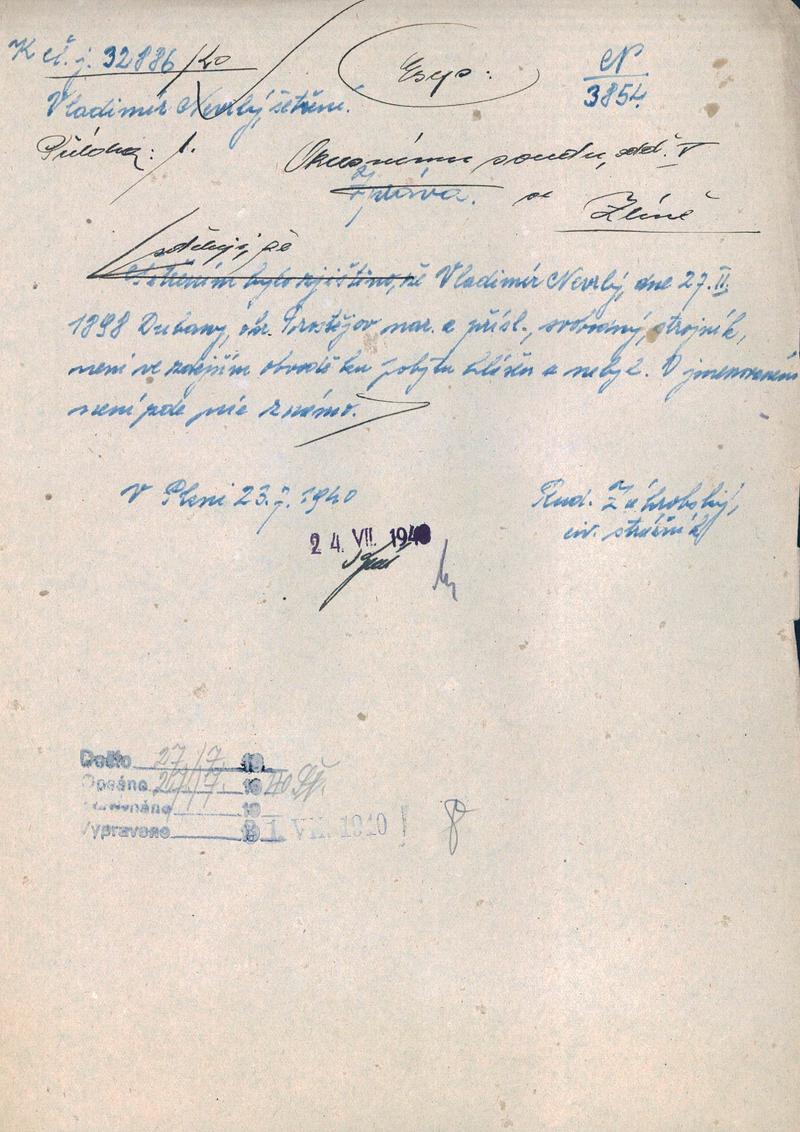 K čj. 32886/40
N
3854
Vladimír Nevrlý, šetření.
Příloha: 1.
Okresnímu soudu, odd. V
Zpráva.
ve
Zlíně
sděluji, že
Šetřením bylo zjištěno, že Vladimír Nevrlý, dne 27. II.
1898 Dubany, okr. Prostějov nar. a přísl., svobodný, strojník,
není ve zdejším obvodě ku pobytu hlášen a nebyl. O jmenovaném
není zde nic známo.
V Plzni 23.7.1940
Rud. Záhrobský,
civ. strážník
24. VII. 1940
Došlo 27./7. 19
Opsáno 27/7. 1940
Srovnáno 19
Vypraveno 31. VII. 1940